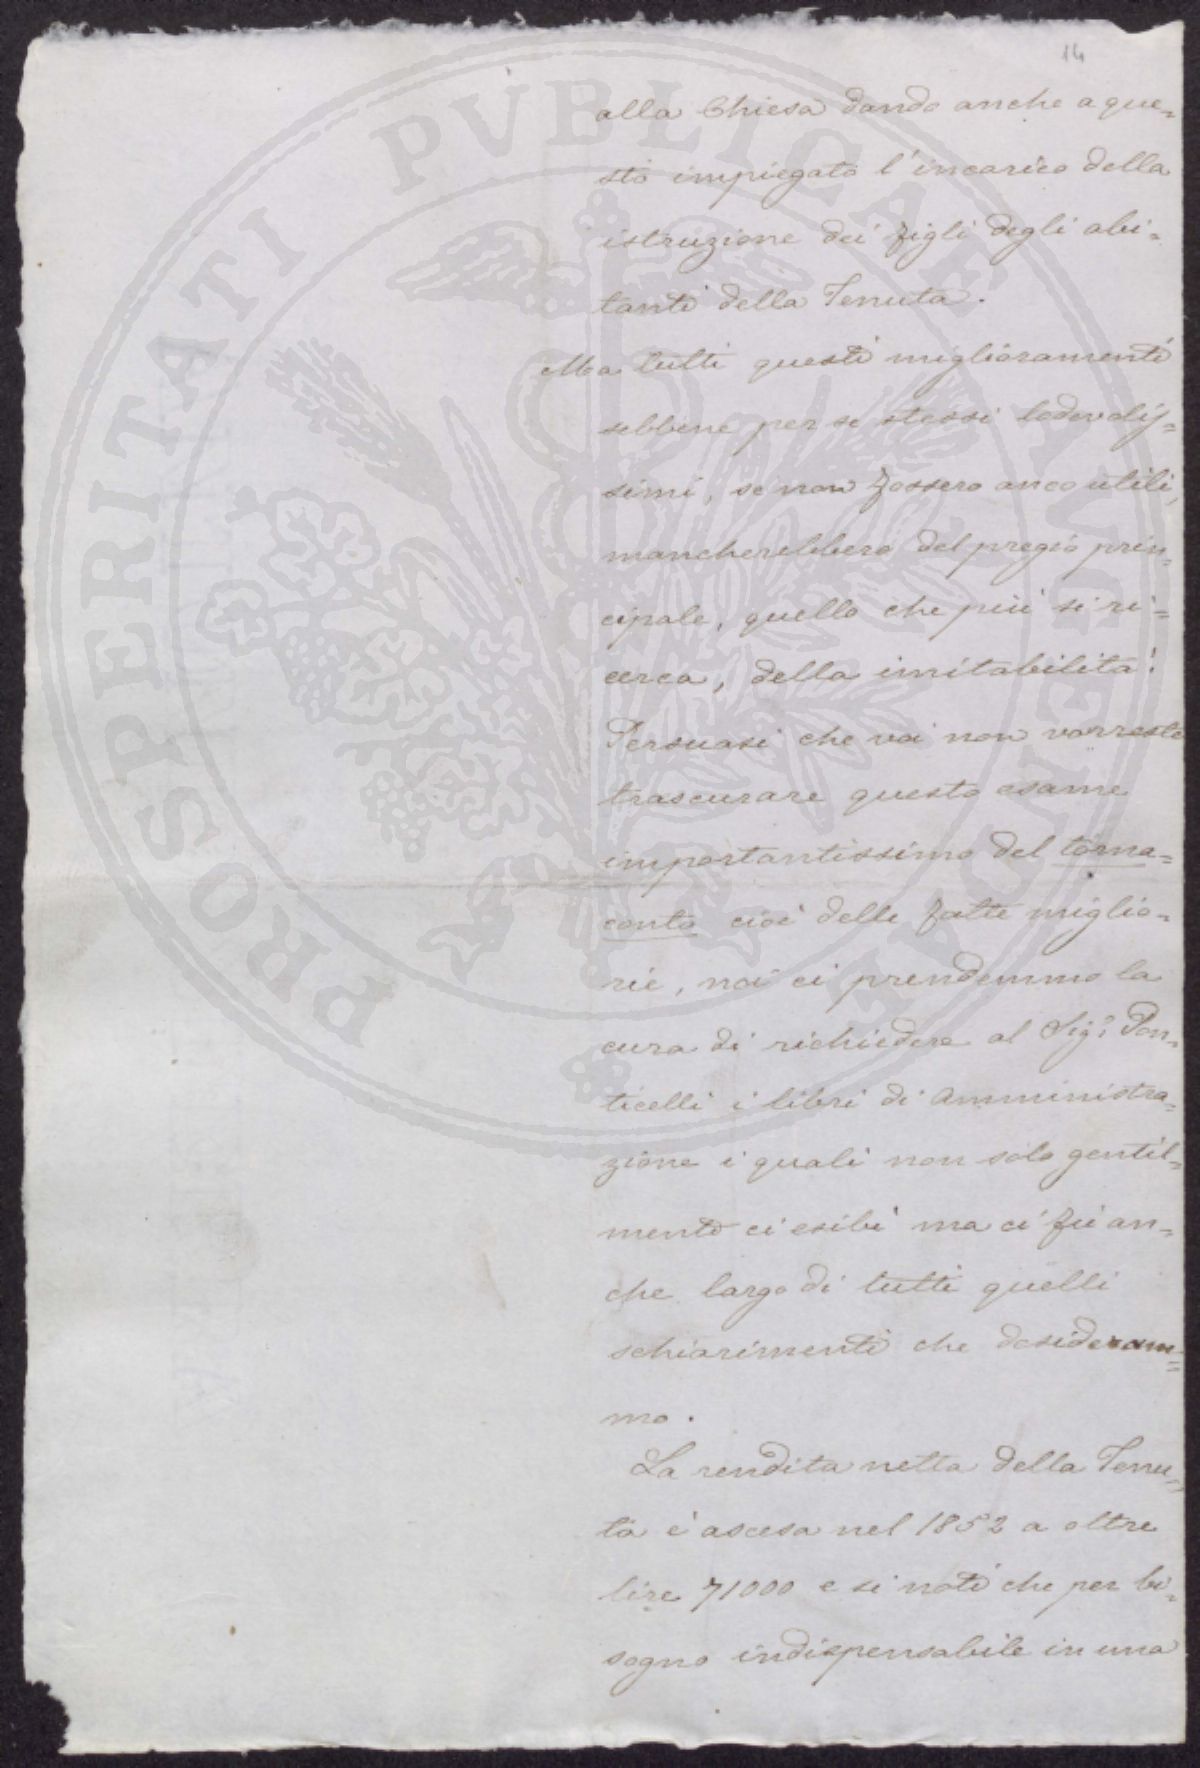 14
alla Chiesa dando anche a que=
sto impiegato l'incarico della
istruzione dei figli degli abi=
tanti della Tenuta.
Ma tutti questi miglioramenti
sebbene per se stessi lodevolis=
simi, se non fossero anco utili,
mancherebbero del pregio prin=
cipale, quello che più si ri=
cerca, della imitabilità!
Persuasi che voi non vorreste
trascurare questo esame
importantissimo del torna=
conto cioè delle fatte miglio=
rie, noi ci prendemmo la
cura di richiedere al Sigr Pon=
ticelli i libri di Amministra=
zione i quali non solo gentil=
mente ci esibì ma ci fù an=
che largo di tutti quelli
schiarimenti che desideram=
mo.
La rendita netta della Tenu=
ta è ascesa nel 1852 a oltre
lire 71000 e si noti che per bi=
sogno indispensabile in una
PROSPERITATI PVBLICAE AVGENDAE